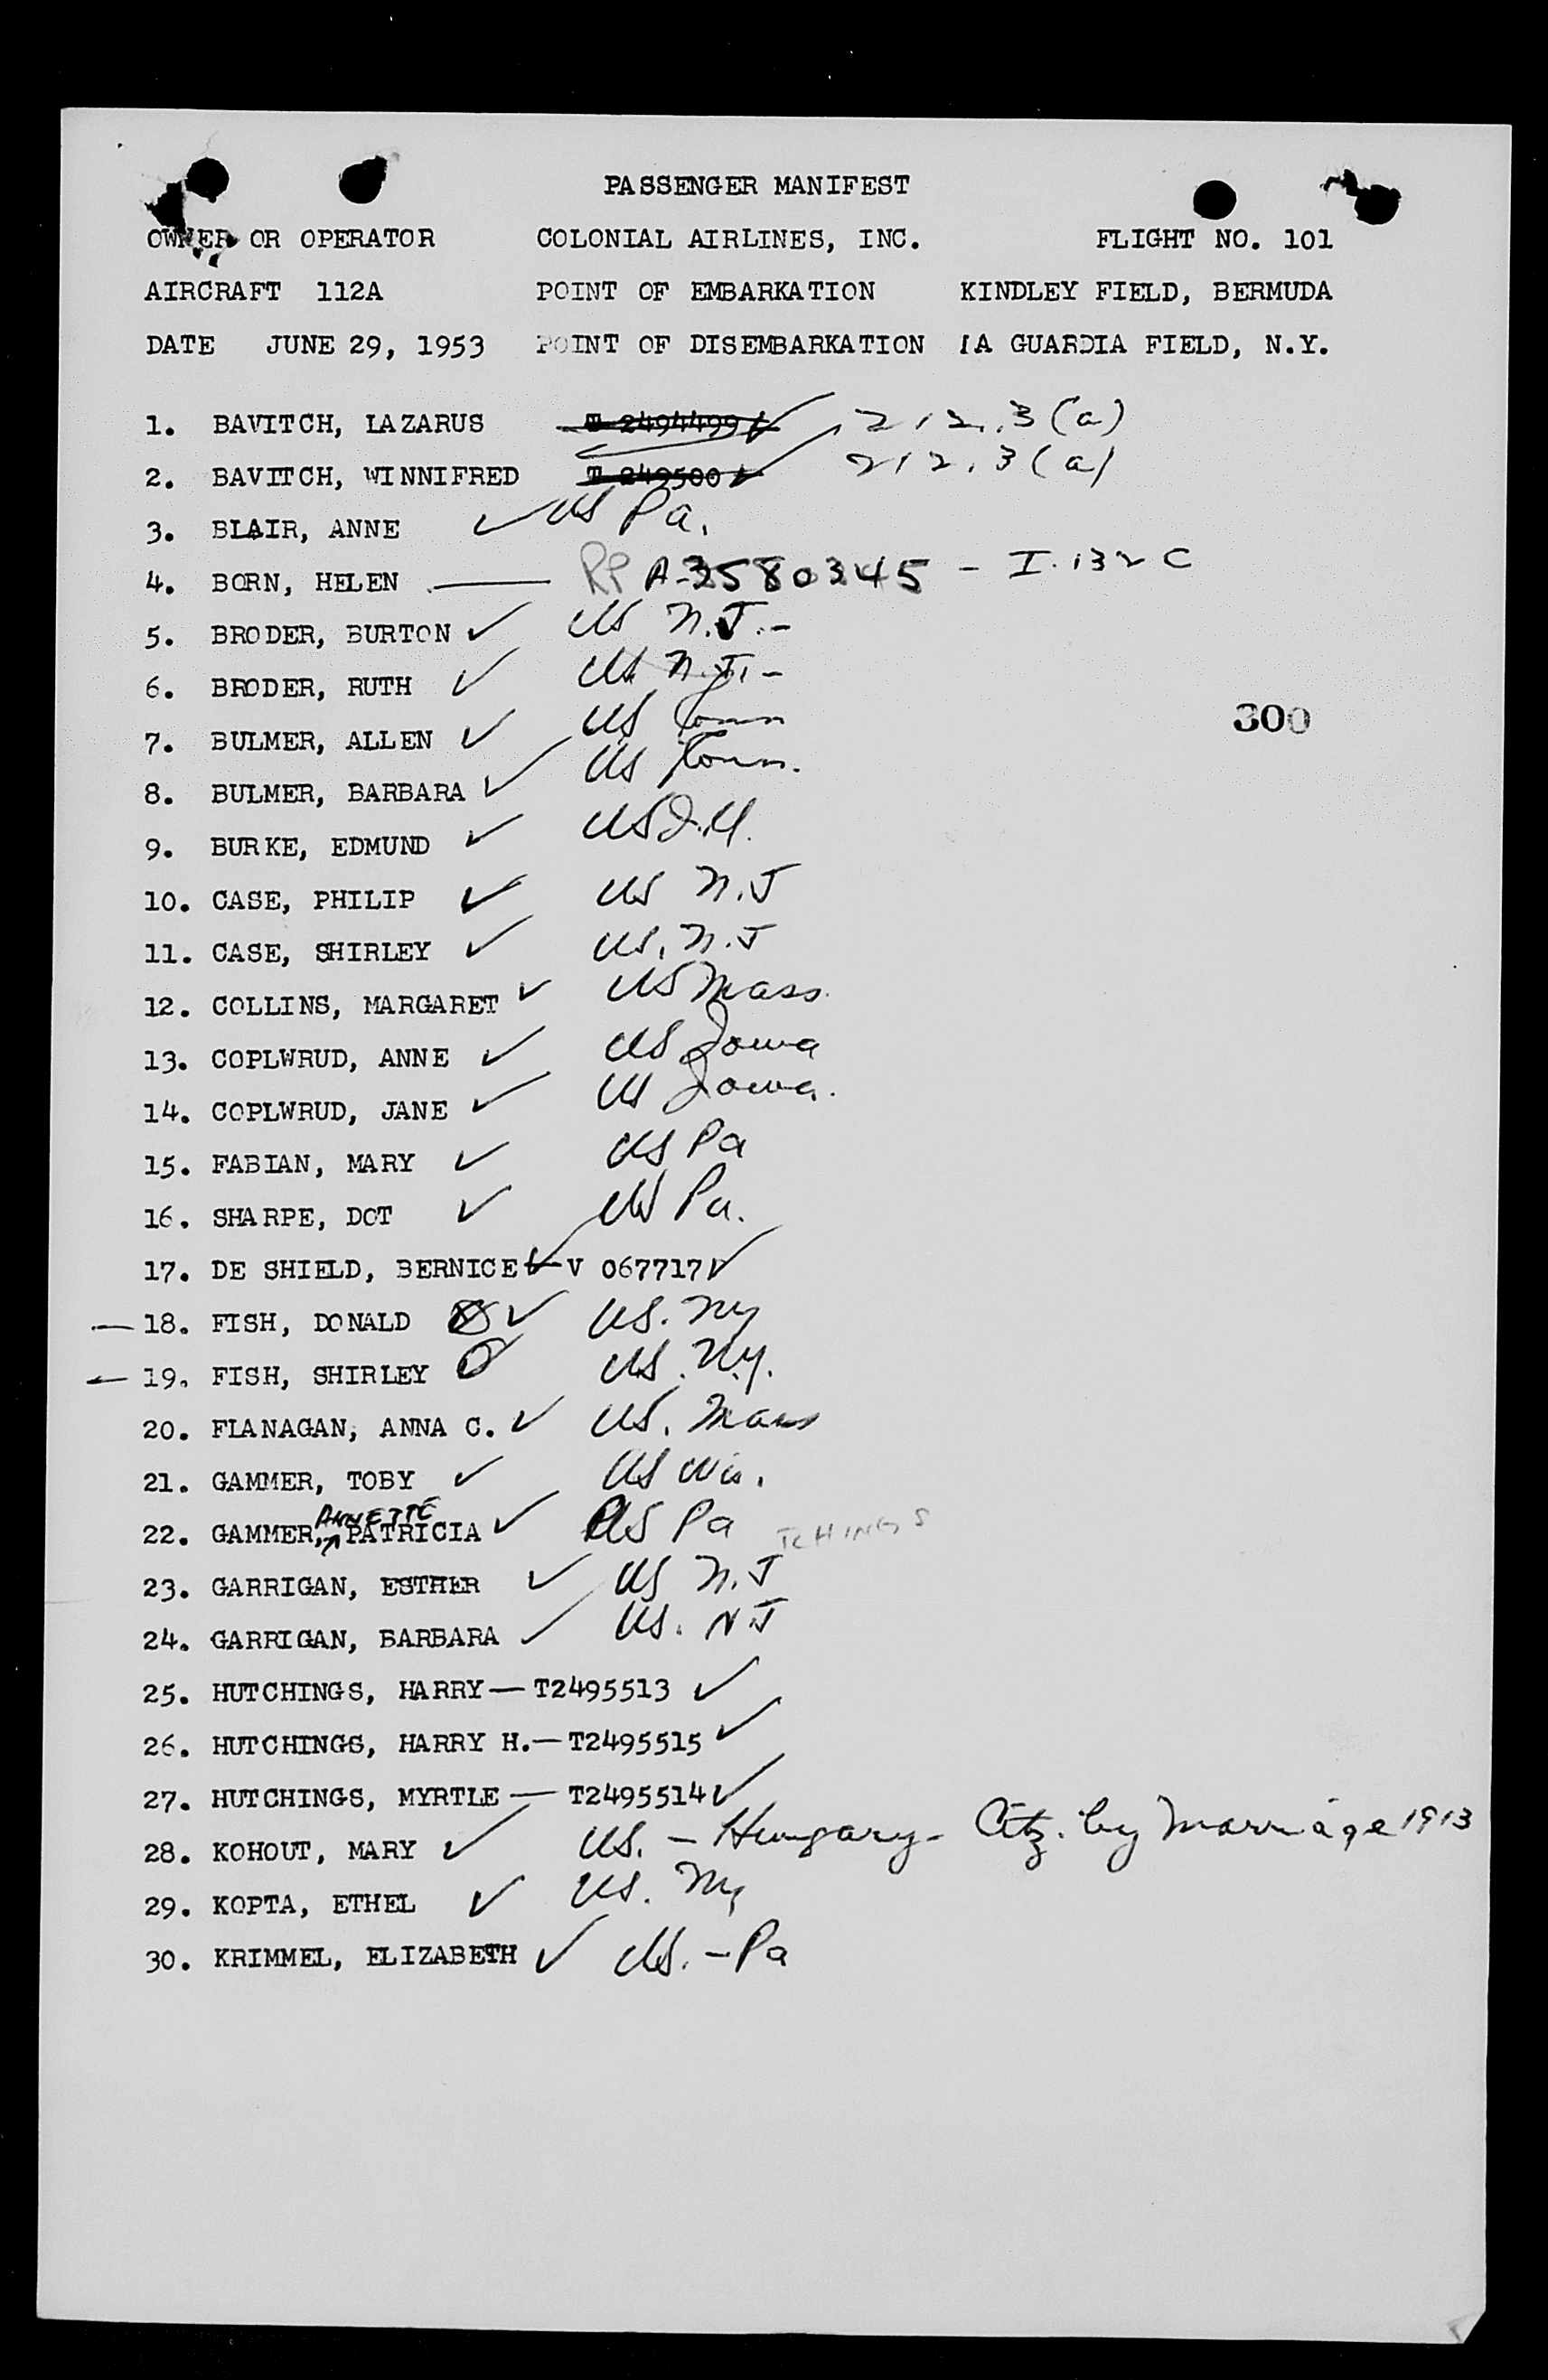 PASSENGER MANIFEST
OWNER OR OPERATOR COLONIAL AIRLINES, INC. FLIGHT NO. 101
AIRCRAFT 112A POINT OF EMBARKATION KINDLEY FIELD, BERMUDA
DATE JUNE 29, 1953 POINT OF DISEMBARKATION LA GUARDIA FIELD, N.Y.
1. BAVITCH, LAZARUS T 2494499 ✓ 212.3(a)
2. BAVITCH, WINNIFRED T 249500 ✓ 212.3(a)
3. BLAIR, ANNE ✓ US Pa.
4. BORN, HELEN — RP A-3580345 - I.132 C
5. BRODER, BURTON ✓ US N.J.-
6. BRODER, RUTH ✓ US. N.J. -
300
7. BULMER, ALLEN ✓ US Conn
8. BULMER, BARBARA ✓ US Conn.
9. BURKE, EDMUND ✓ US
10. CASE, PHILIP ✓ US N.J
11. CASE, SHIRLEY ✓ US. N.J
12. COLLINS, MARGARET ✓ US Mass.
13. COPLWRUD, ANNE ✓ US Iowa
14. COPLWRUD, JANE ✓ US Iowa.
15. FABIAN, MARY ✓ US Pa
16. SHARPE, DOT ✓ US Pa.
17. DE SHIELD, BERNICE ✓ — V 067717 ✓
— 18. FISH, DONALD ✓ US. NY
— 19. FISH, SHIRLEY US. N.Y.
20. FLANAGAN, ANNA C. ✓ US. Mass
21. GAMMER, TOBY ✓ US Wis.
ANNETTE
22. GAMMER, PATRICIA ✓ US Pa TCHINGS
23. GARRIGAN, ESTHER ✓ US N.J
24. GARRIGAN, BARBARA ✓ US. N.J
25. HUTCHINGS, HARRY — T2495513 ✓
26. HUTCHINGS, HARRY H. — T2495515 ✓
27. HUTCHINGS, MYRTLE — T2495514 ✓
28. KOHOUT, MARY ✓ US. - Hungary - Citz. by Marriage 1913
29. KOPTA, ETHEL ✓ US. NY
30. KRIMMEL, ELIZABETH ✓ US. - Pa